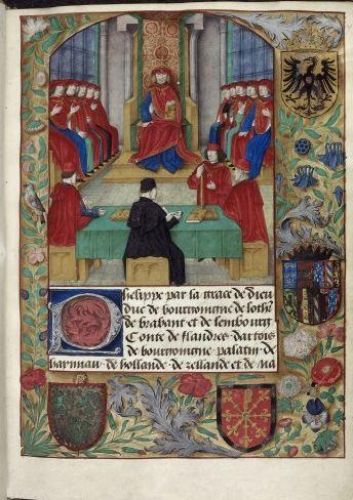 Phelippe par la grace de dieu
duc de bourgoingne de loth
de brabant et de lembourg
Conte de flandres dartois
de bourgoingne palatin de
haynnau de hollande de zellande et de Na